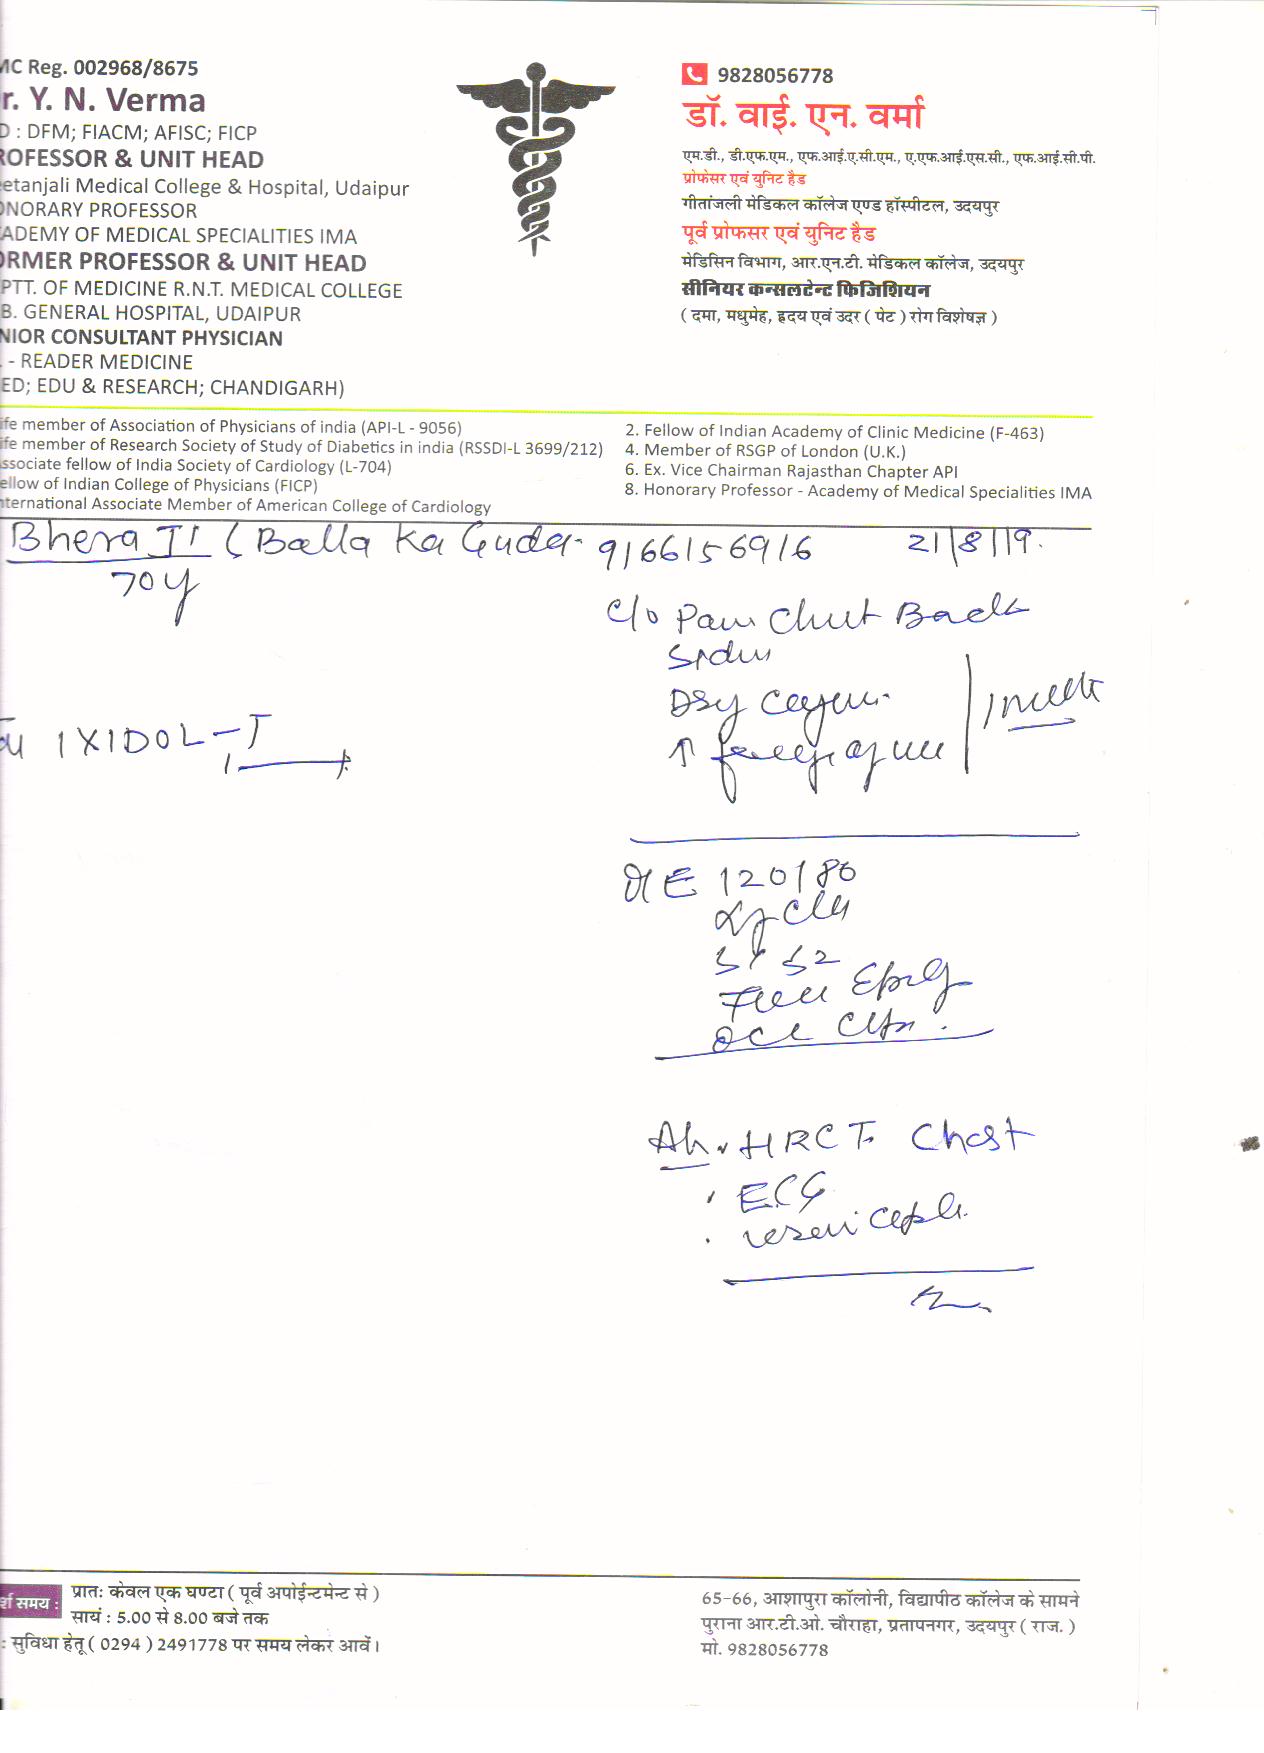 MC Reg. 002968/8675
r. Y. N. Verma
D : DFM; FIACM; AFISC; FICP
ROFESSOR & UNIT HEAD
eetanjali Medical College & Hospital, Udaipur
ONORARY PROFESSOR
ADEMY OF MEDICAL SPECIALITIES IMA
ORMER PROFESSOR & UNIT HEAD
PTT. OF MEDICINE R.N.T. MEDICAL COLLEGE
B. GENERAL HOSPITAL, UDAIPUR
NIOR CONSULTANT PHYSICIAN
. - READER MEDICINE
ED; EDU & RESEARCH; CHANDIGARH)
9828056778
डॉ. वाई. एन. वर्मा
एम.डी., डी.एफ.एम., एफ.आई.ए.सी.एम., ए.एफ.आई.एस.सी., एफ.आई.सी.पी.
प्रोफेसर एवं युनिट हैड
गीतांजली मेडिकल कॉलेज एण्ड हॉस्पीटल, उदयपुर
पूर्व प्रोफसर एवं युनिट हैड
मेडिसिन विभाग, आर.एन.टी. मेडिकल कॉलेज, उदयपुर
सीनियर कन्सलटेन्ट फिजिशियन
( दमा, मधुमेह, हृदय एवं उदर ( पेट ) रोग विशेषज्ञ )
ife member of Association of Physicians of india (API-L - 9056)
ife member of Research Society of Study of Diabetics in india (RSSDI-L 3699/212)
ssociate fellow of India Society of Cardiology (L-704)
ellow of Indian College of Physicians (FICP)
nternational Associate Member of American College of Cardiology
2. Fellow of Indian Academy of Clinic Medicine (F-463)
4. Member of RSGP of London (U.K.)
6. Ex. Vice Chairman Rajasthan Chapter API
8. Honorary Professor - Academy of Medical Specialities IMA
Bhera JI ( Balla Ka Guda. 9166156916 21/8/19.
70y
c/o Pain Back
Dry
↑
1XIDOL-T
E 120/80
S1 S2
HRCT. Chest
. ECG
.
र्श समय :
प्रातः केवल एक घण्टा ( पूर्व अपोईन्टमेन्ट से )
सायं : 5.00 से 8.00 बजे तक
: सुविधा हेतू ( 0294 ) 2491778 पर समय लेकर आवें।
65-66, आशापुरा कॉलोनी, विद्यापीठ कॉलेज के सामने
पुराना आर.टी.ओ. चौराहा, प्रतापनगर, उदयपुर ( राज. )
मो. 9828056778